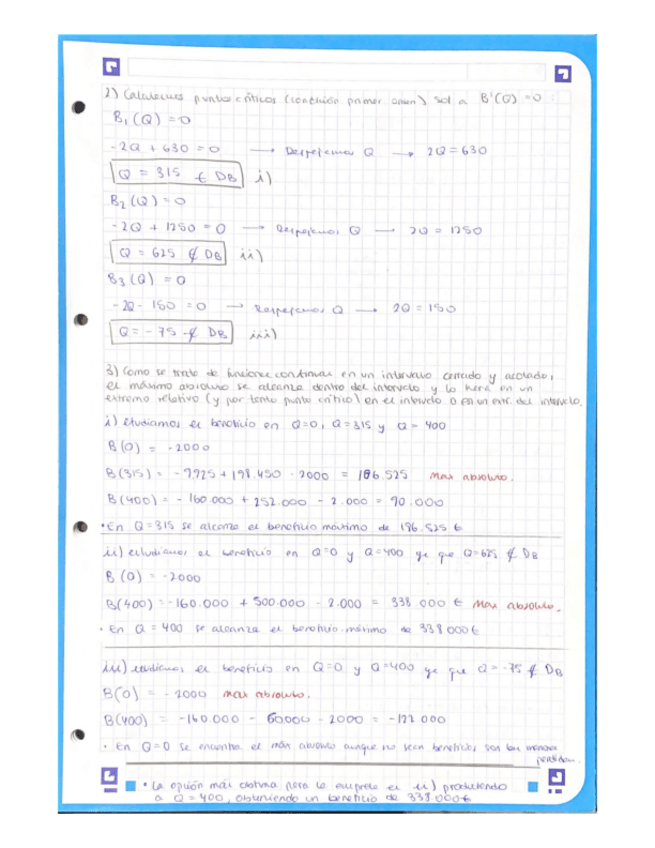 2) Calculamos puntos críticos (condición primer orden) sol a B'(Q) = 0 :
B₁(Q) = 0
-2Q + 630 = 0 → Despejamos Q → 2Q = 630
Q = 315 € DB i)
B₂(Q) = 0
-2Q + 1250 = 0 → Despejamos Q → 2Q = 1250
Q = 625 ∉ DB ii)
B₃(Q) = 0
-2Q - 150 = 0 → Despejamos Q → 2Q = 150
Q = -75 ∉ DB iii)
3) Como se trata de funciones continuas en un intervalo cerrado y acotado,
el máximo absoluto se alcanza dentro del intervalo y lo hará en un
extremo relativo (y por tanto punto crítico) en el intervalo o en un extr. del intervalo.
i) estudiamos el beneficio en Q=0, Q=315 y Q=400
B(0) = -2000
B(315) = + 198.450 - 2000 = Max absoluto.
B(400) = - 160.000 + 252.000 - 2.000 = 90.000
• En Q=315 se alcanza el beneficio máximo de €
ii) estudiamos el beneficio en Q=0 y Q=400 ya que Q=625 ∉ DB
B(0) = -2000
B(400) = -160.000 + 500.000 - 2.000 = 338.000 € Max absoluto.
• En Q = 400 se alcanza el beneficio máximo de 338000€
iii) estudiamos el beneficio en Q=0 y Q=400 ya que Q=-75 ∉ DB
B(0) = -2000 max absoluto.
B(400) = -160.000 - 60.000 - 2000 = 000
• En Q=0 se encuentra el máx absoluto aunque no sean beneficios, son las menores
perdidas.
• La opción más óptima para la empresa es ii) produciendo
a Q = 400, obteniendo un beneficio de 338.000€